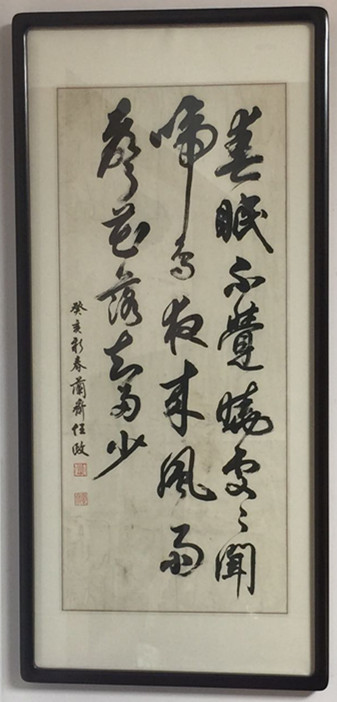 春眠不覺曉處々聞
啼鳥夜來風雨
聲花落知多少
癸亥新春蘭齋任政